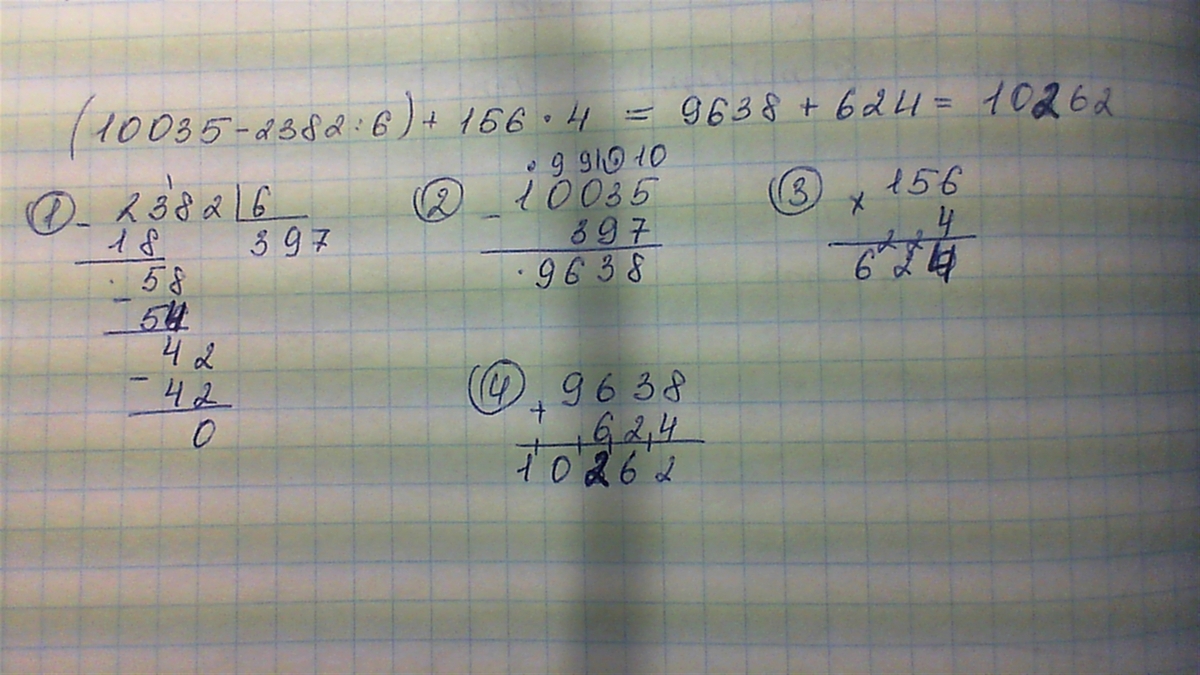 (10035-2382:6)+156·4 = 9638+624= 10262
① - 2382|6
18 397
58
- 54
42
- 42
0
② · 9 9 10 10
- 10035
397
·9638
③ × 156
4
2 2
624
④ + 9638
624
10262